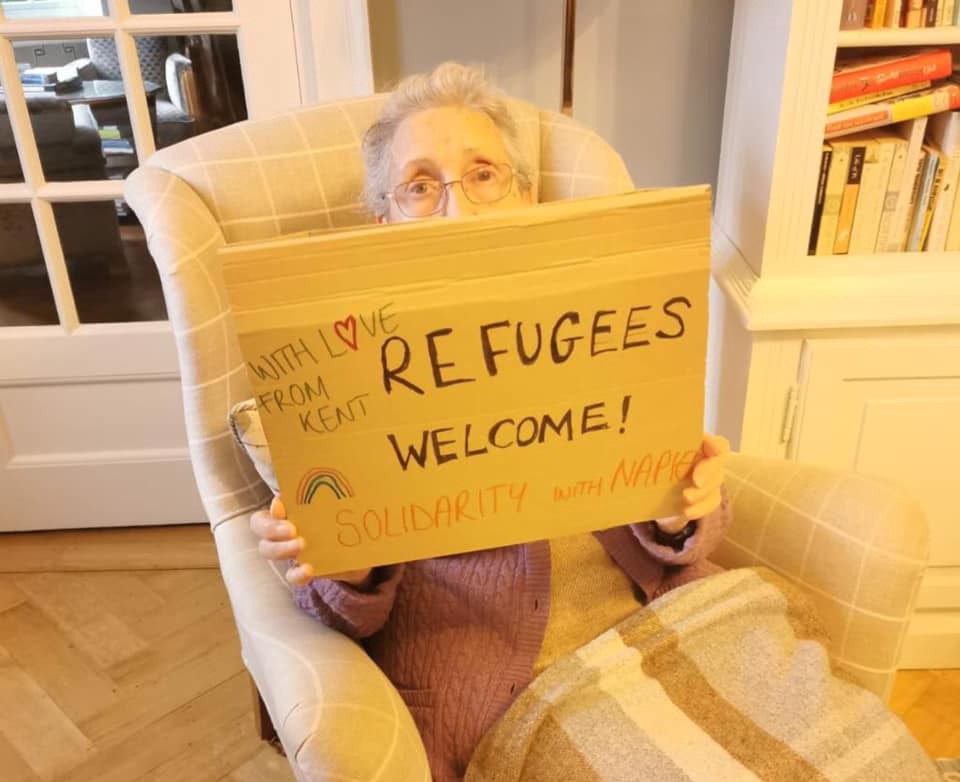 WITH LOVE
FROM
KENT
REFUGEES
WELCOME!
SOLIDARITY WITH